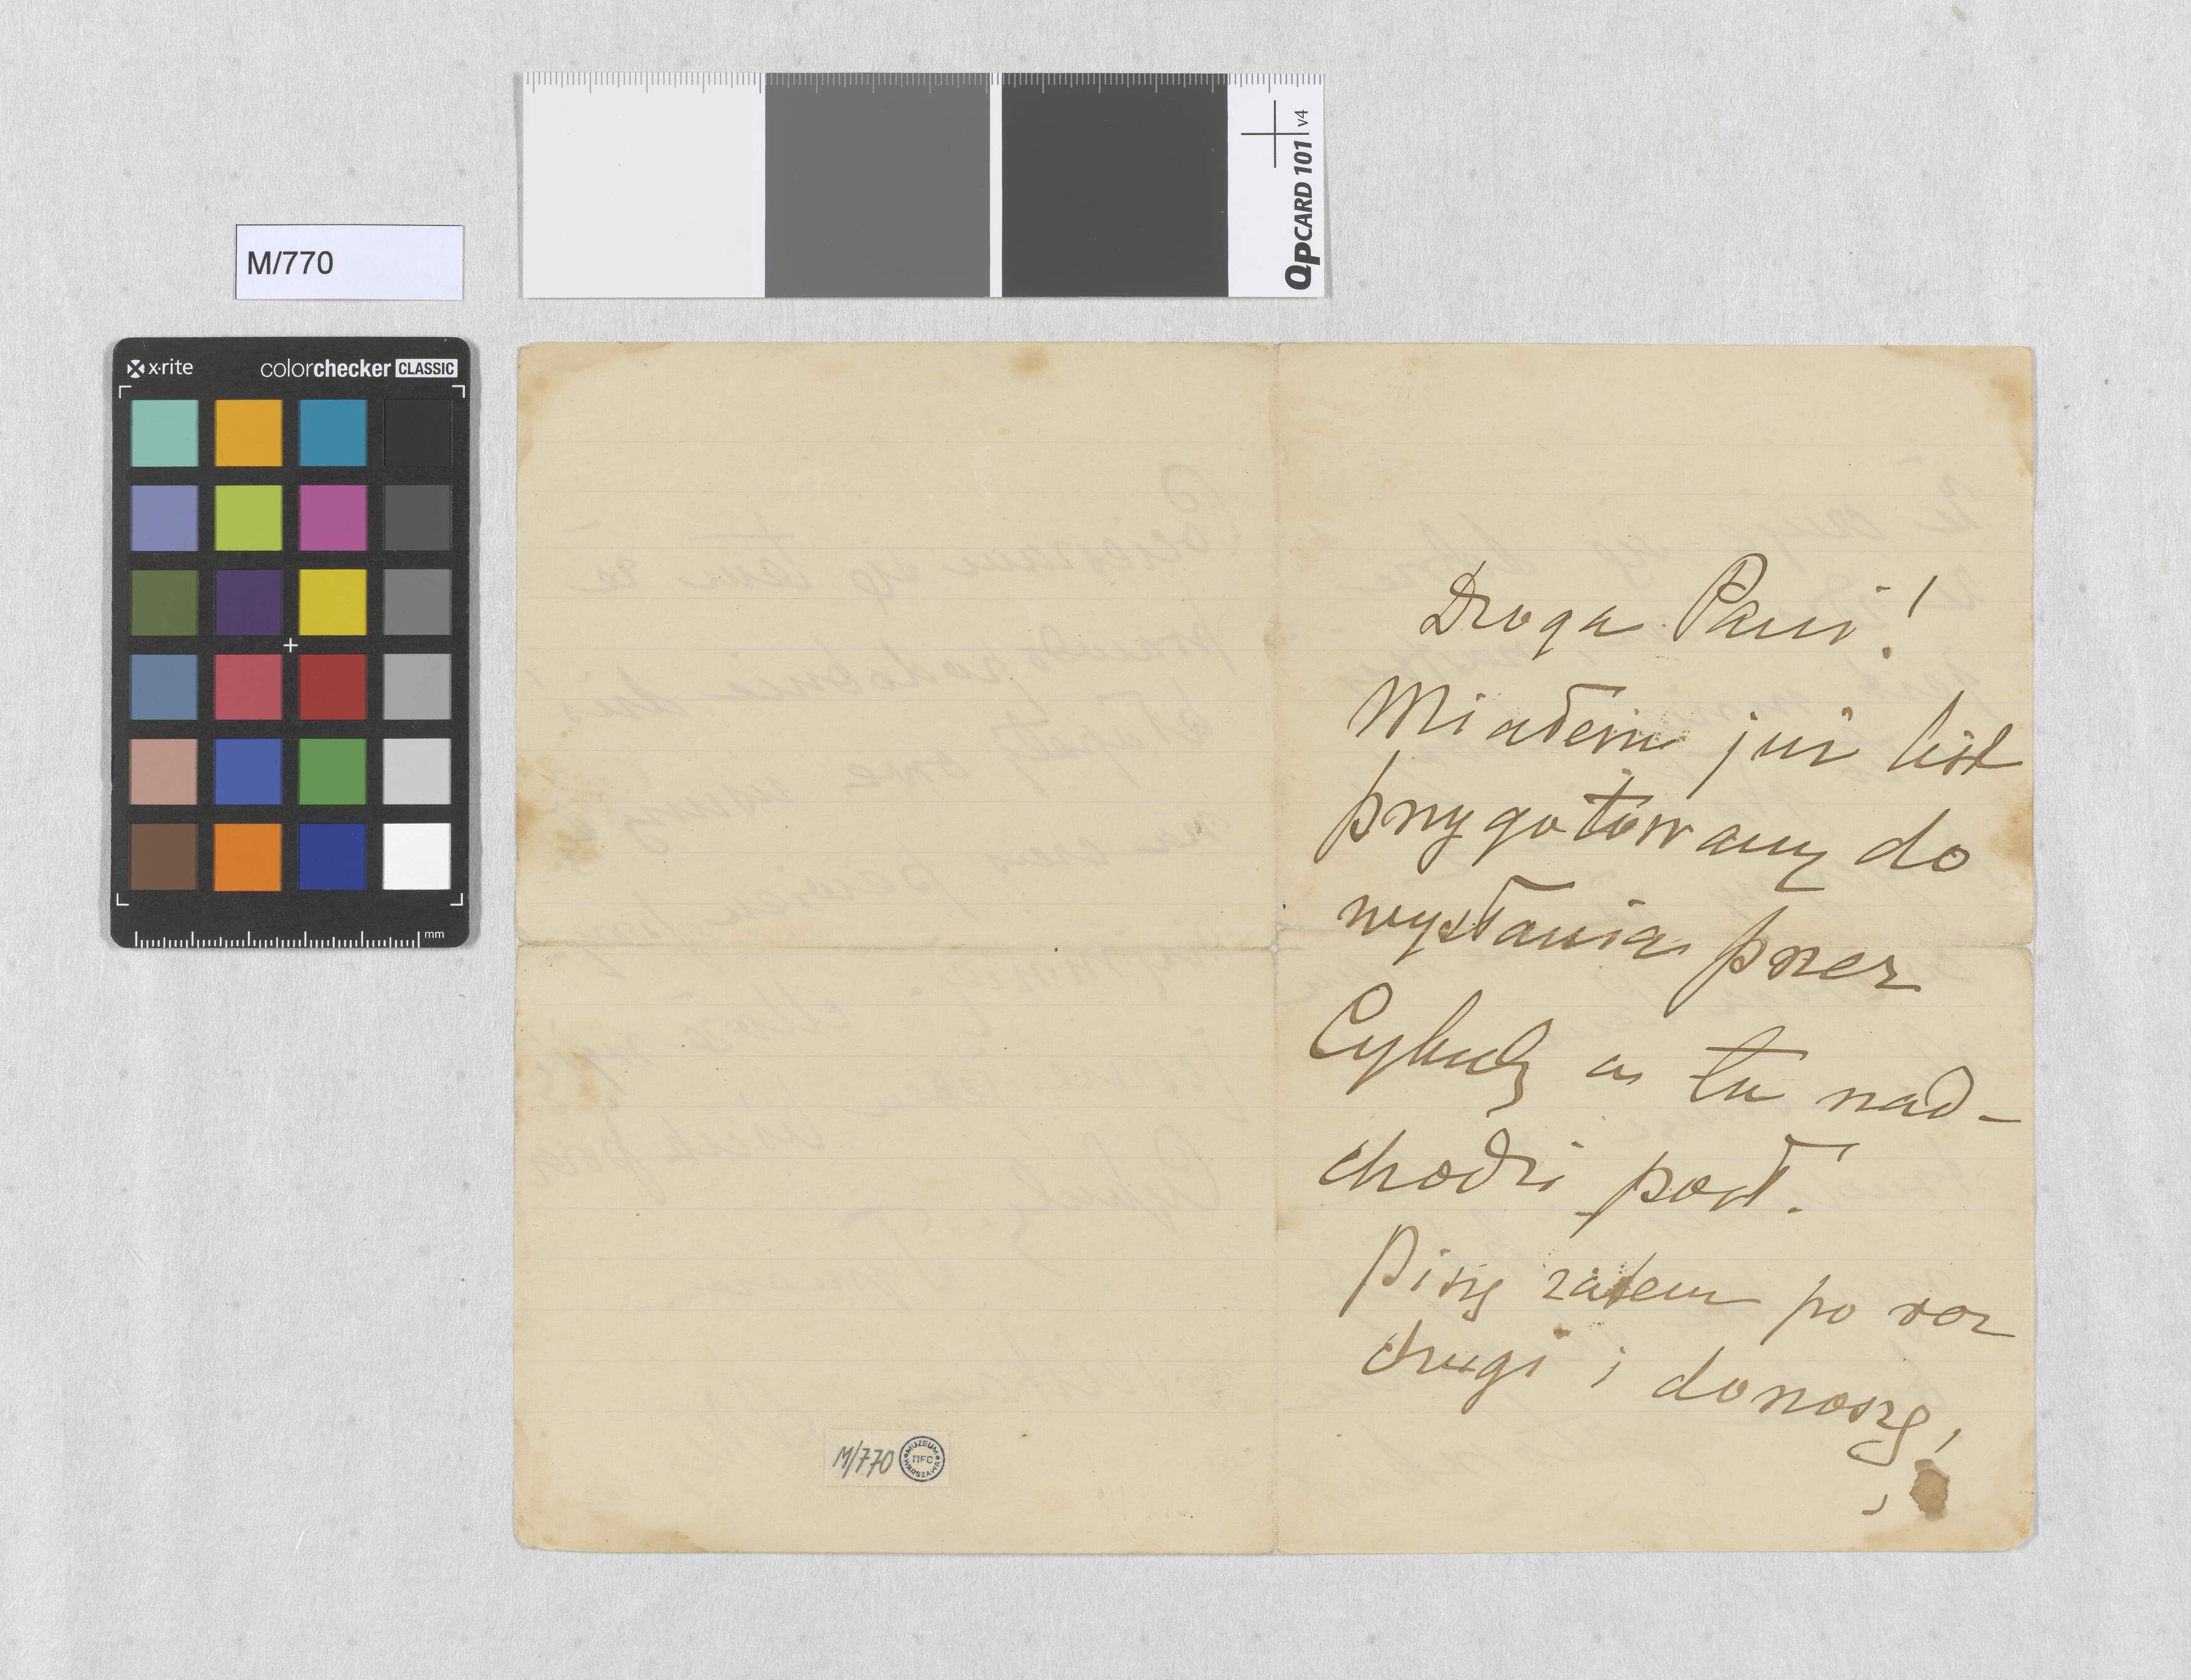 M/770
QPCARD 101 v4
x·rite colorchecker CLASSIC
mm
Droga Pani!
Miałem już list
przygotowany do
wysłania przez
Cybulę a tu nad-
chodzi poszt.
Piszę zatem po raz
drugi i donoszę,
M/770
MUZEUM TIFC WARSZAWA